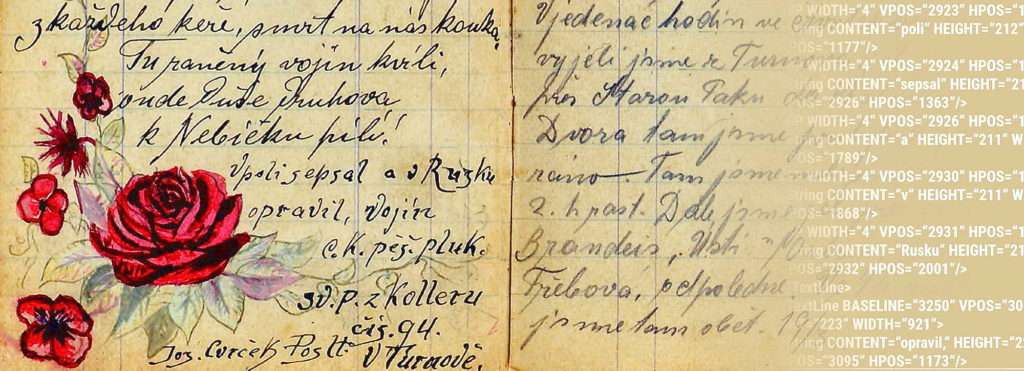 z každého keře, smrt na nás kouká,
Tu raněný vojín kvílí,
onde Duše Druhova
k Nebíčku pílí!
V poli sepsal a v Rusku
opravil, vojín
c.k. pěš. pluk.
sv. p. z Kolleru
čís. 94.
Jos. Cvrček
v Turnově.
V jedenáct hodin ve
vyjeli jsme z Turn
přes Starou Paku do
Dvora tam jsme
ráno. Tam jsme
2. h past. Dále jsme
Brandeis, Ústí n
Třebova, odpoledne
jsme tam oběd.
WIDTH="4" VPOS="2923" HPOS="1
ring CONTENT="poli" HEIGHT="212"
OS="1177"/>
WIDTH="4" VPOS="2924" HPOS="1
ring CONTENT="sepsal" HEIGHT="21
OS="2926" HPOS="1363"/>
WIDTH="4" VPOS="2926" HPOS="1
ring CONTENT="a" HEIGHT="211" W
OS="1789"/>
WIDTH="4" VPOS="2930" HPOS="1
ring CONTENT="v" HEIGHT="211" W
OS="1868"/>
WIDTH="4" VPOS="2931" HPOS="1
ring CONTENT="Rusku" HEIGHT="21
OS="2932" HPOS="2001"/>
TextLine>
extLine BASELINE="3250" VPOS="30
223" WIDTH="921">
ring CONTENT="opravil," HEIGHT="22
OS="3095" HPOS="1173"/>